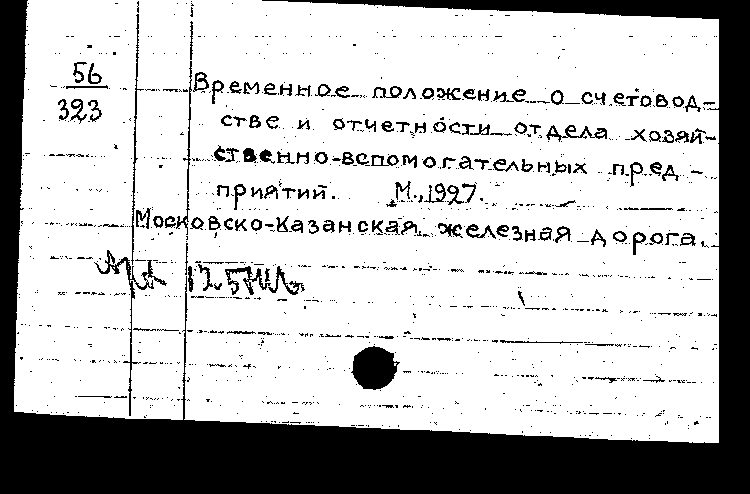 56
323
Временное положение о счетовод-
стве и отчетности отдела хозяй-
ственно-вспомогательных пред-
приятий. М., 1927.
Московско-Казанская железная дорога.